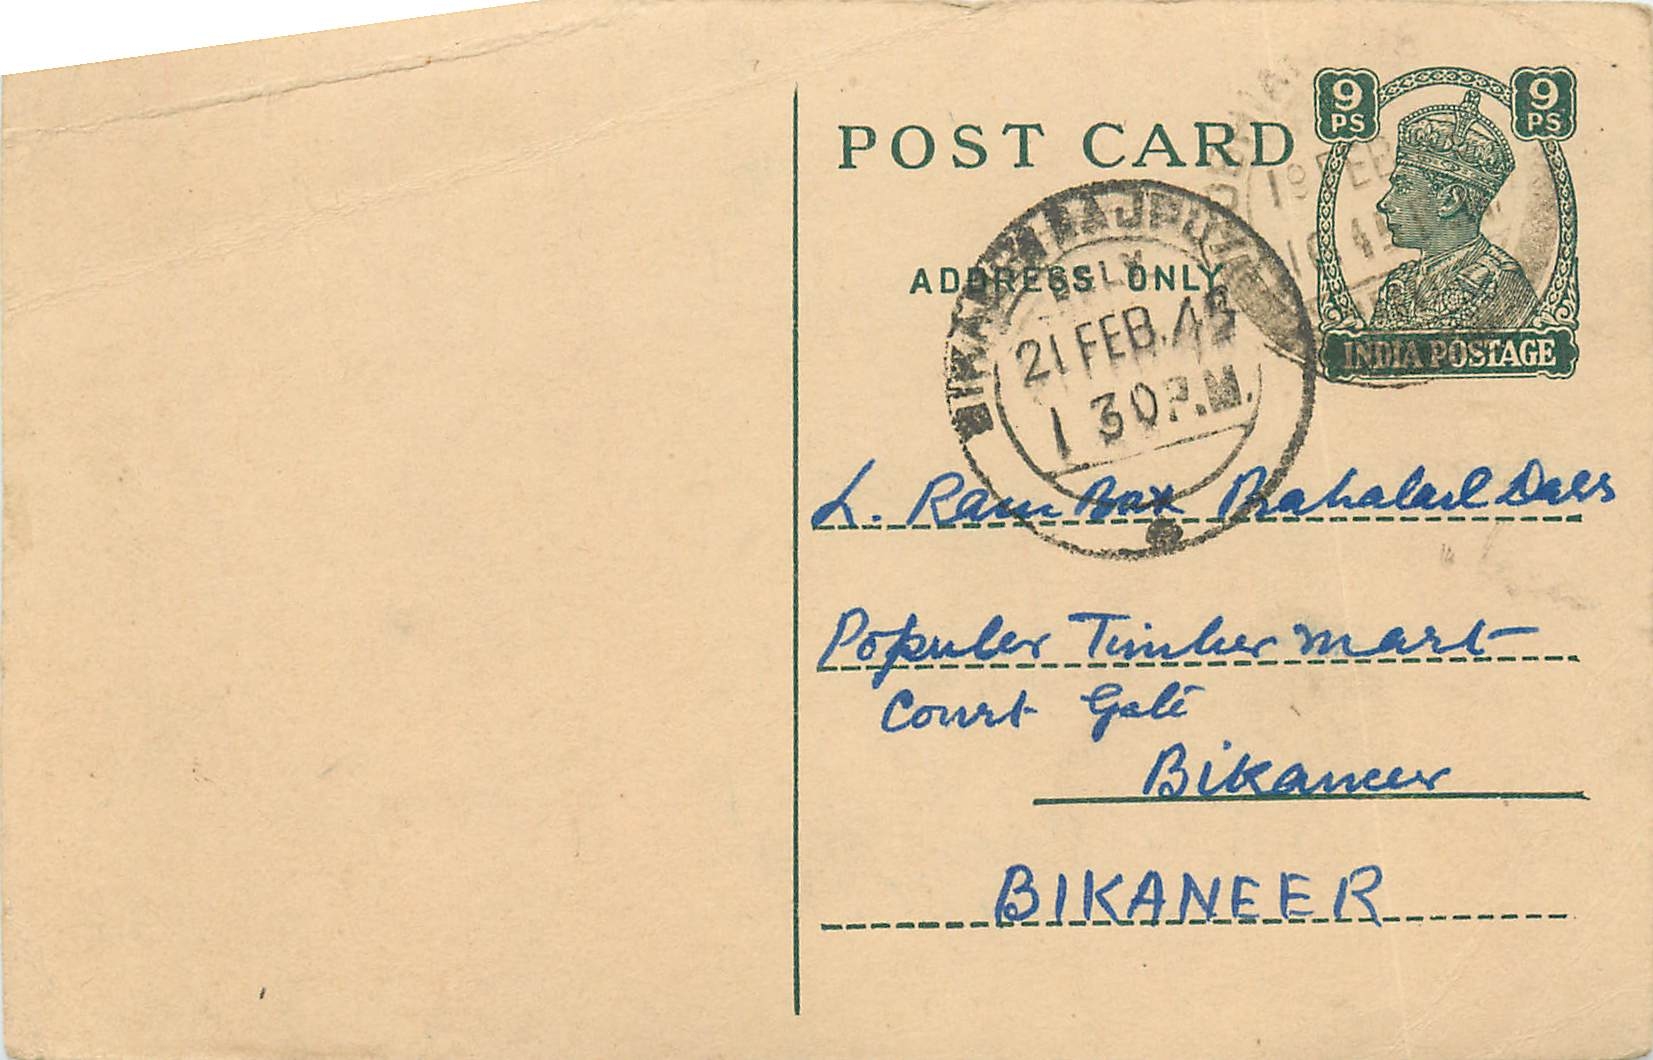 9 PS 9 PS
POST CARD
19 FEB
ADDRESS ONLY
DELY
21 FEB. 45
1 30 P.M.
INDIA POSTAGE
L. Ram Bax Prahalad Dass
Populer Timber Mart
Court Gate
Bikaneer
BIKANEER